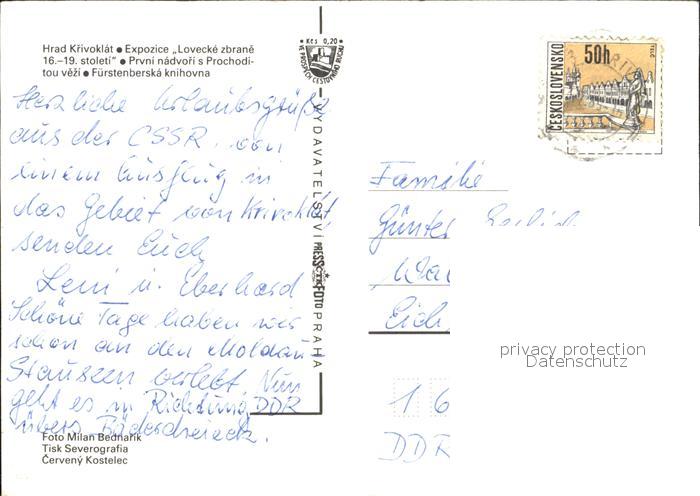 Hrad Křivoklát ● Expozice „Lovecké zbraně
16.–19. století" ● První nádvoří s Prochodi-
tou věží ● Fürstenberská knihovna
Kčs 0,20
VE PROSPĚCH CESTOVNÍHO RUCHU
ČESKOSLOVENSKO
50h
TELČ
Herzliche Urlaubsgrüße
aus der CSSR. von
einem Ausflug in
das Gebiet von Krivoklát,
senden Euch
Leni u. Eberhard
Schöne Tage haben wir
schon an den Moldau
Stauseen verlebt. Nun
geht es in Richtung DDR
übers Bäderdreieck.
VYDAVATELSTVÍ PRESSFOTO PRAHA
Familie
Günter
Eich
privacy protection
Datenschutz
1 6
DDR
Foto Milan Bednařík
Tisk Severografia
Červený Kostelec